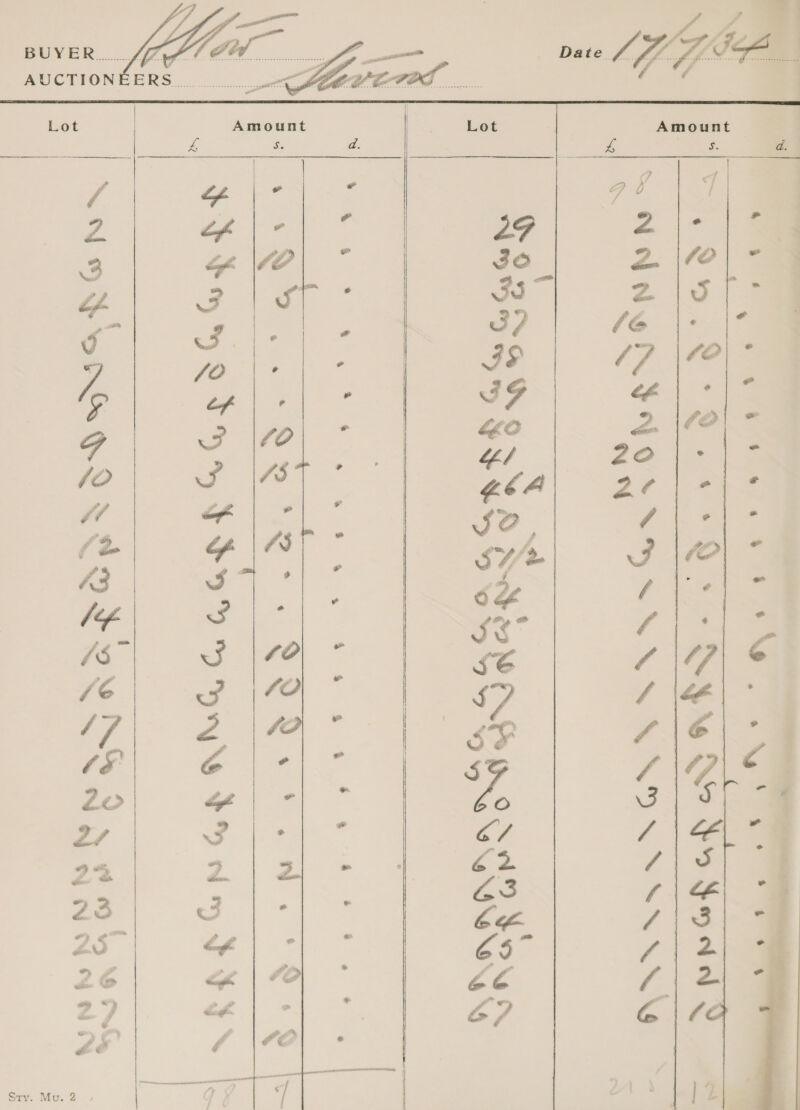 BUYER
AUCTIONEERS
Date 17/7/34
Lot Amount
£ s. d.
1 4 - -
2 4 - -
3 4 10 -
4 3 5 -
5 3 - -
7 10 - -
8 4 - -
9 3 10 -
10 3 15 -
11 4 - -
12 4 15 -
13 5 - -
14 3 - -
15 3 10 -
16 3 10 -
17 2 10 -
18 6 - -
20 4 - -
21 3 - -
22 2 2 -
23 3 - -
25 4 - -
26 4 10 -
27 4 - -
28 1 10 -
98 7
Sty. Mu. 2
Lot Amount
£ s. d.
98 7
29 2 - -
30 2 10 -
35 2 5 -
37 16 - -
38 17 10 -
39 4 - -
40 2 10 -
41 20 - -
46A 21 - -
50 1 - -
51/2 3 10 -
54 1 - -
55 1 - -
56 1 17 6
57 1 4 -
58 1 6 -
59 1 17 6
60 3 5 -
61 1 4 -
62 1 5 -
63 1 4 -
64 1 3 -
65 1 2 -
66 1 2 -
67 6 10 -
12